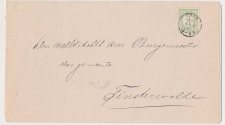 Den weledelen heer Burgemeester
der gemeente
Finsterwolde